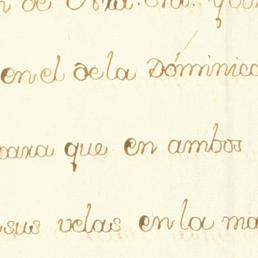 en el de la Dominica
para que en ambos
sus velas en la ma